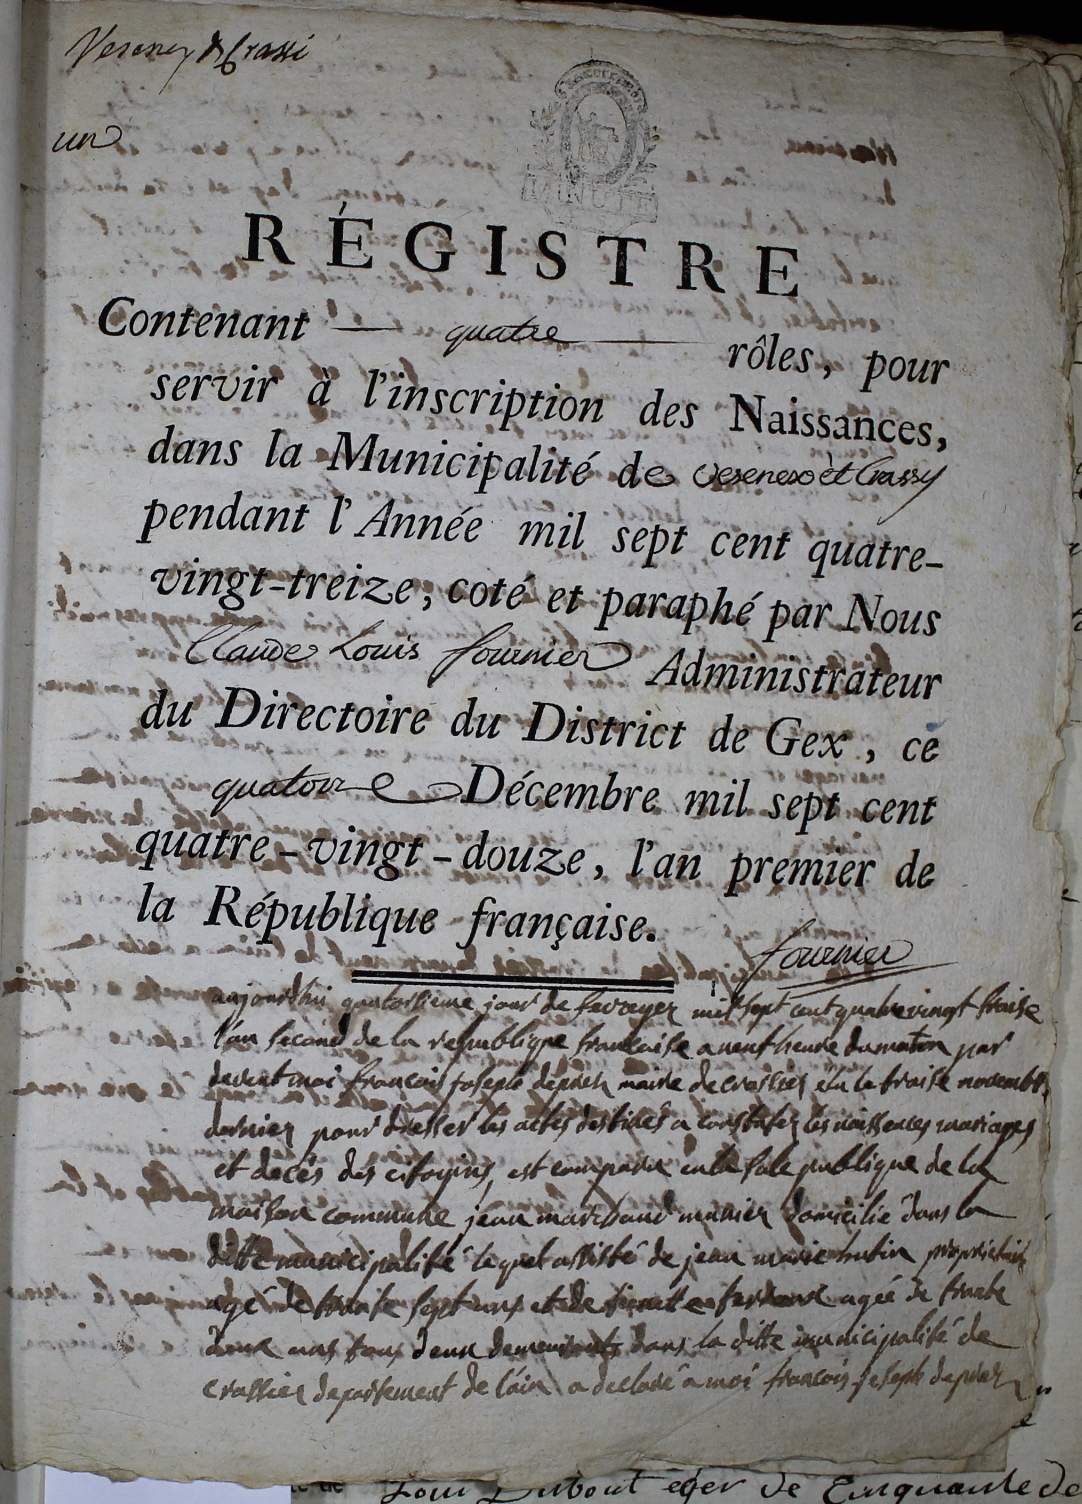 Vesenex & Crassi
un
MINUTE
RÉGISTRE
Contenant quatre rôles, pour
servir à l'inscription des Naissances,
dans la Municipalité de vesenex et Crassy
pendant l'Année mil sept cent quatre-
vingt-treize, coté et paraphé par Nous
Claude Louis fournier Administrateur
du Directoire du District de Gex, ce
quatorze Décembre mil sept cent
quatre-vingt-douze, l'an premier de
la République française.
fournier
aujourdhui quatorsieme jour de fevryer mil sept cent quatrevingt traise
l'an second de la republique francaise a neuf heure du maton par
devent moi francois joseph deprez maire de crassier élu le traise novembre
dernier pour dresser les actes destinés a constater les naissances mariages
et décés des citoyins, est comparu en la sale publique de la
maison commune jean marchand munier domicilié dans la
ditte municipalité lequel assisté de jean marie hutin proprietaire
agé de trante sept ans et de agée de trante
deux ans tous deux demeurants dans la ditte municipalité de
crassier departement de l'ain a declaré a moi francois joseph deprez
Loui Dubout de Cinquante de